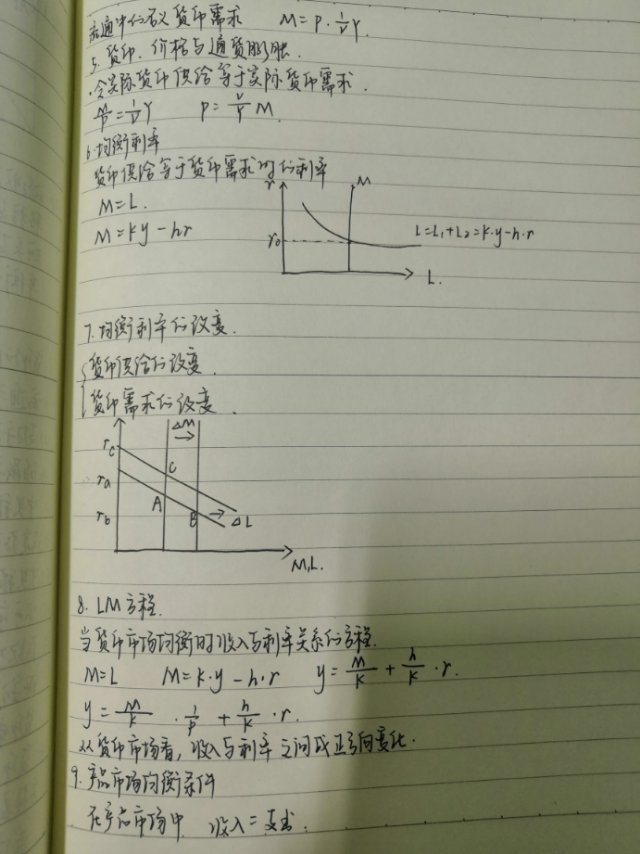 流通中的名义货币需求 M=P·1/V Y.
5. 货币、价格与通货膨胀.
·令实际货币供给等于实际货币需求.
M/P=1/V Y P=V/Y M.
6.均衡利率
货币供给等于货币需求时的利率
M=L.
M=ky-hr
r
M
L=L₁+L₂=k·y-h·r
r₀
L.
7.均衡利率的改变.
货币供给的改变.
货币需求的改变.
ΔM
rc
C
ra
A
rb
B
ΔL
M,L.
8. LM方程.
当货币市场均衡时收入与利率关系的方程.
M=L M=k·y-h·r y=M/k+h/k·r.
y=M/k·1/P+h/k·r.
从货币市场看,收入与利率之间成正向变化.
9.产品市场均衡条件
在产品市场中 收入=支出.